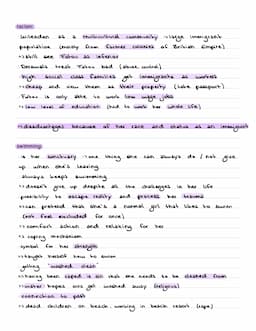 racism:
Willesden as a multicultural community → large immigrant
population (mainly from former colonies of British Empire)
→ still see Tatou as inferior
Devereaux's treat Tatou bad (slave, wrong)
high social class families get immigrants as workers
→ cheap and view them as their property (take passport)
Fatou is only able to work low wage jobs
→ low level of education (had to work her whole life)
→ disadvantages because of her race and status as an immigrant
swimming:
is her sanctuary → one thing she can always do / not give
up when she's leaving
always keeps swimming
→ doesn't give up despite all the challenges in her life
possibility to escape reality and process her trauma
→ can pretend that she's a normal girl that likes to swim
(not feel excluded for once)
→ comfort action and relaxing for her
→ coping mechanism
symbol for her strength
→ taught herself how to swim
getting "washed clean"
→ having been raped is a sin that she needs to be cleaned from
→ water: hopes sins get washed away (religion)
connection to past
→ dead children on beach, working in beach resort (rape)